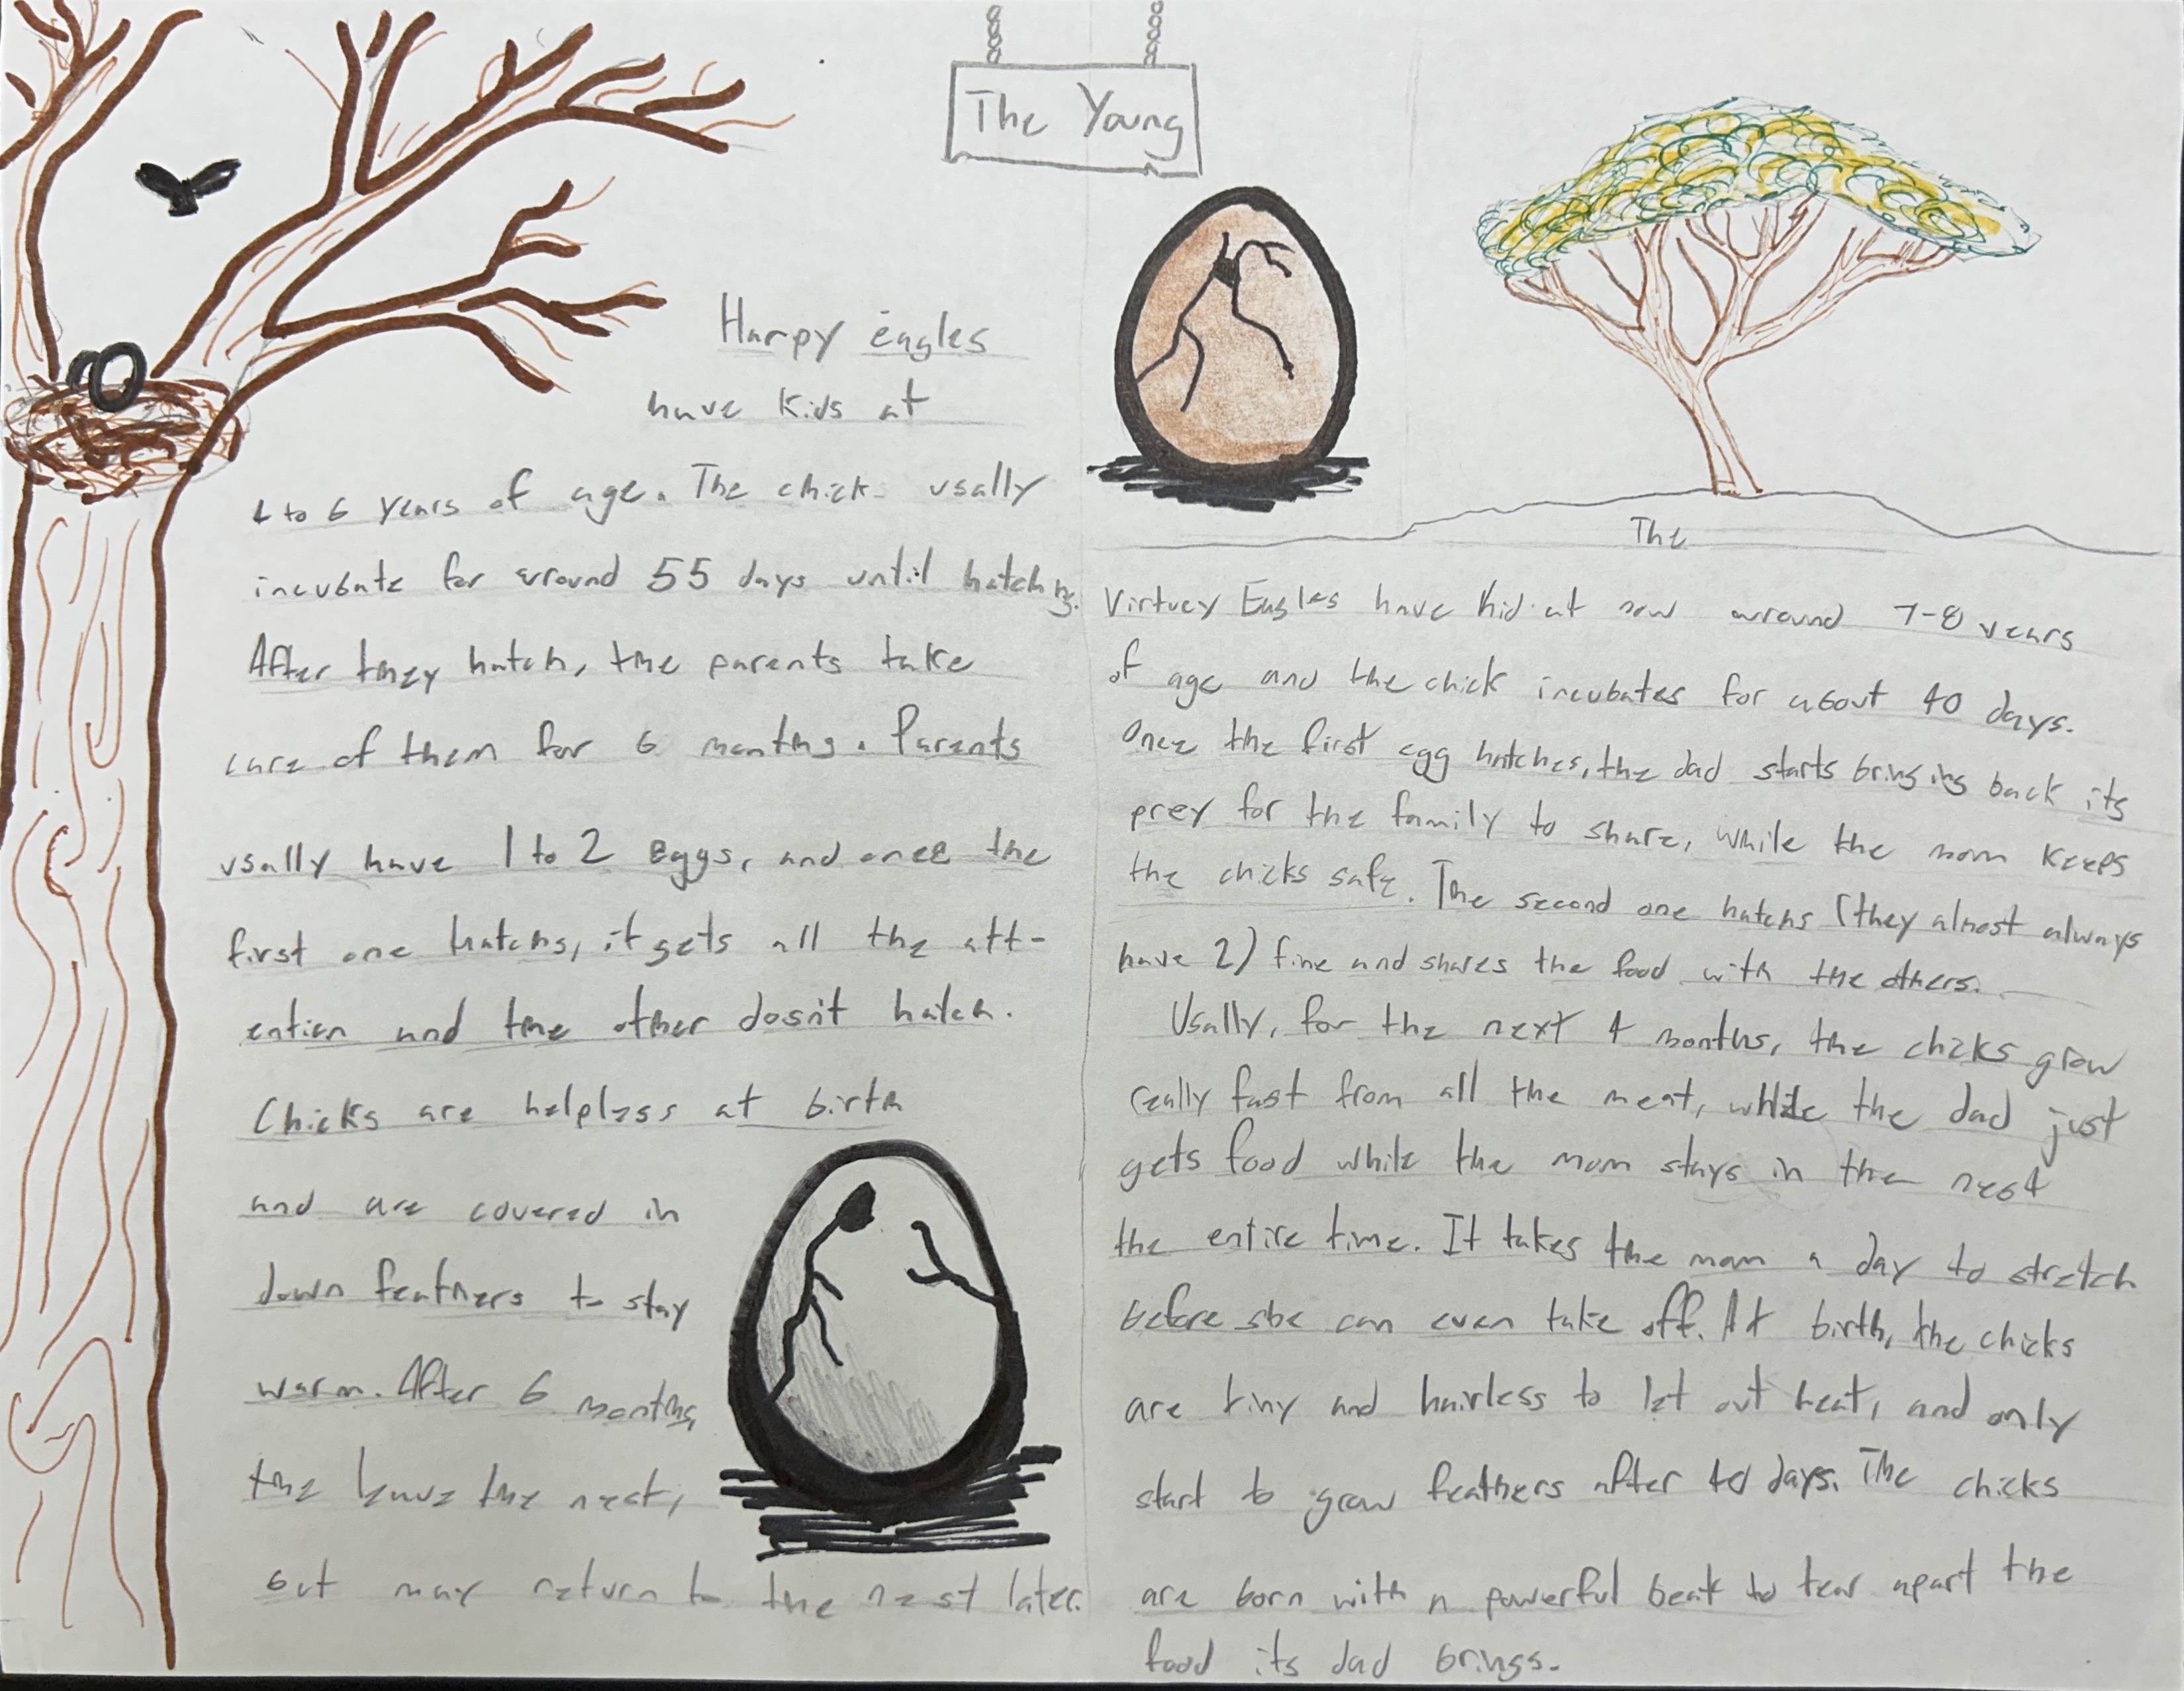 The Young
Harpy eagles
have Kids at
4 to 6 years of age. The chick usally
incubate for around 55 days until hatching.
After they hatch, the parents take
care of them for 6 months. Parents
usally have 1 to 2 eggs, and once the
first one hatchs, it gets all the att-
ention and the other dosn't hatch.
Chicks are helpless at birth
and are covered in
down feathers to stay
warm. After 6 months,
the leave the nest,
but may return to the nest later.
The
Virtuey Eagles have kid at now around 7-8 years
of age and the chick incubates for about 40 days.
Once the first egg hatches, the dad starts bringing back its
prey for the family to share, while the mom keeps
the chicks safe. The second one hatchs (they almost always
have 2) fine and shares the food with the others.
Usally, for the next 4 months, the chicks grow
really fast from all the meat, while the dad just
gets food while the mom stays in the nest
the entire time. It takes the mom a day to stretch
before she can even take off. At birth, the chicks
are tiny and hairless to let out heat, and only
start to grow feathers after 40 days. The chicks
are born with a powerful beak to tear apart the
food its dad brings.